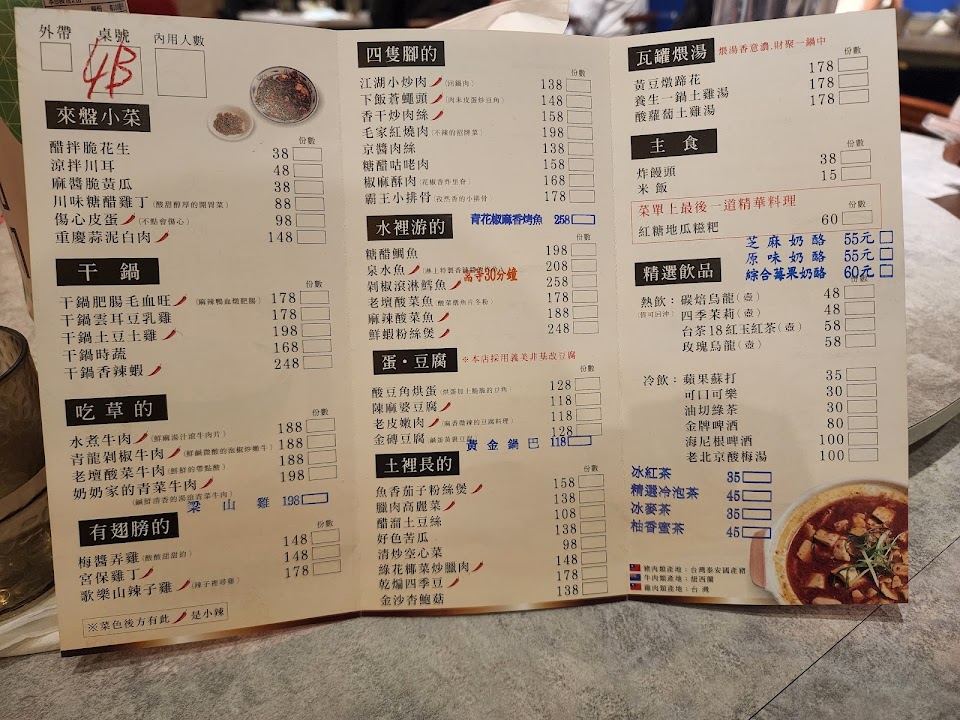 外帶 桌號 內用人數
4B
來盤小菜
份數
醋拌脆花生 38
涼拌川耳 48
麻醬脆黃瓜 38
川味糖醋雞丁(酸甜醇厚的開胃菜) 88
傷心皮蛋(不點會傷心) 98
重慶蒜泥白肉 148
干鍋
份數
干鍋肥腸毛血旺(麻辣鴨血燉肥腸) 178
干鍋雲耳豆乳雞 178
干鍋土豆土雞 198
干鍋時蔬 168
干鍋香辣蝦 248
吃草的
份數
水煮牛肉(鮮麻湯汁滾牛肉片) 188
青龍剁椒牛肉(鮮鹹微酸的泡椒炒嫩牛) 188
老壇酸菜牛肉(鮮鮮的帶點酸) 188
奶奶家的青菜牛肉 198
梁山雞 198
有翅膀的
份數
梅醬弄雞(酸酸甜甜的) 148
宮保雞丁 148
歌樂山辣子雞(辣子裡尋雞) 178
※菜色後方有此 是小辣
四隻腳的
份數
江湖小炒肉(回鍋肉) 138
下飯蒼蠅頭(肉末皮蛋炒豆角) 148
香干炒肉絲 158
毛家紅燒肉(不辣的招牌菜) 198
京醬肉絲 138
糖醋咕咾肉 158
椒麻酥肉(花椒香炸里脊) 168
霸王小排骨(孜然香的小排骨) 178
水裡游的
青花椒麻香烤魚 258
糖醋鯛魚 198
泉水魚 208
需等30分鐘
剁椒滾淋鱈魚 258
老壇酸菜魚(酸菜燉魚片冬粉) 178
麻辣酸菜魚 188
鮮蝦粉絲煲 248
蛋・豆腐
※本店採用義美非基改豆腐
份數
酸豆角烘蛋 128
陳麻婆豆腐 118
老皮嫩肉(麻香帶辣的豆腐料理) 118
金磚豆腐 128
黃金鍋巴 118
土裡長的
份數
魚香茄子粉絲煲 158
臘肉高麗菜 138
醋溜土豆絲 108
好色苦瓜 138
清炒空心菜 98
綠花椰菜炒臘肉 148
乾煸四季豆 178
金沙杏鮑菇 138
瓦罐煨湯
煨湯香意濃,財聚一鍋中
份數
黃豆燉蹄花 178
養生一鍋土雞湯 178
酸蘿蔔土雞湯 178
主食
份數
炸饅頭 38
米飯 15
菜單上最後一道精華料理
份數
紅糖地瓜糍粑 60
芝麻奶酪 55元
原味奶酪 55元
綜合莓果奶酪 60元
精選飲品
熱飲:碳焙烏龍(壺) 48
(皆可回沖) 四季茉莉(壺) 48
台茶18紅玉紅茶(壺) 58
玫瑰烏龍(壺) 58
冷飲:蘋果蘇打 35
可口可樂 30
油切綠茶 30
金牌啤酒 80
海尼根啤酒 100
老北京酸梅湯 100
冰紅茶 35
精選冷泡茶 45
冰麥茶 35
柚香蜜茶 45
豬肉類產地:台灣泰安國產豬
牛肉類產地:紐西蘭
雞肉類產地:台灣